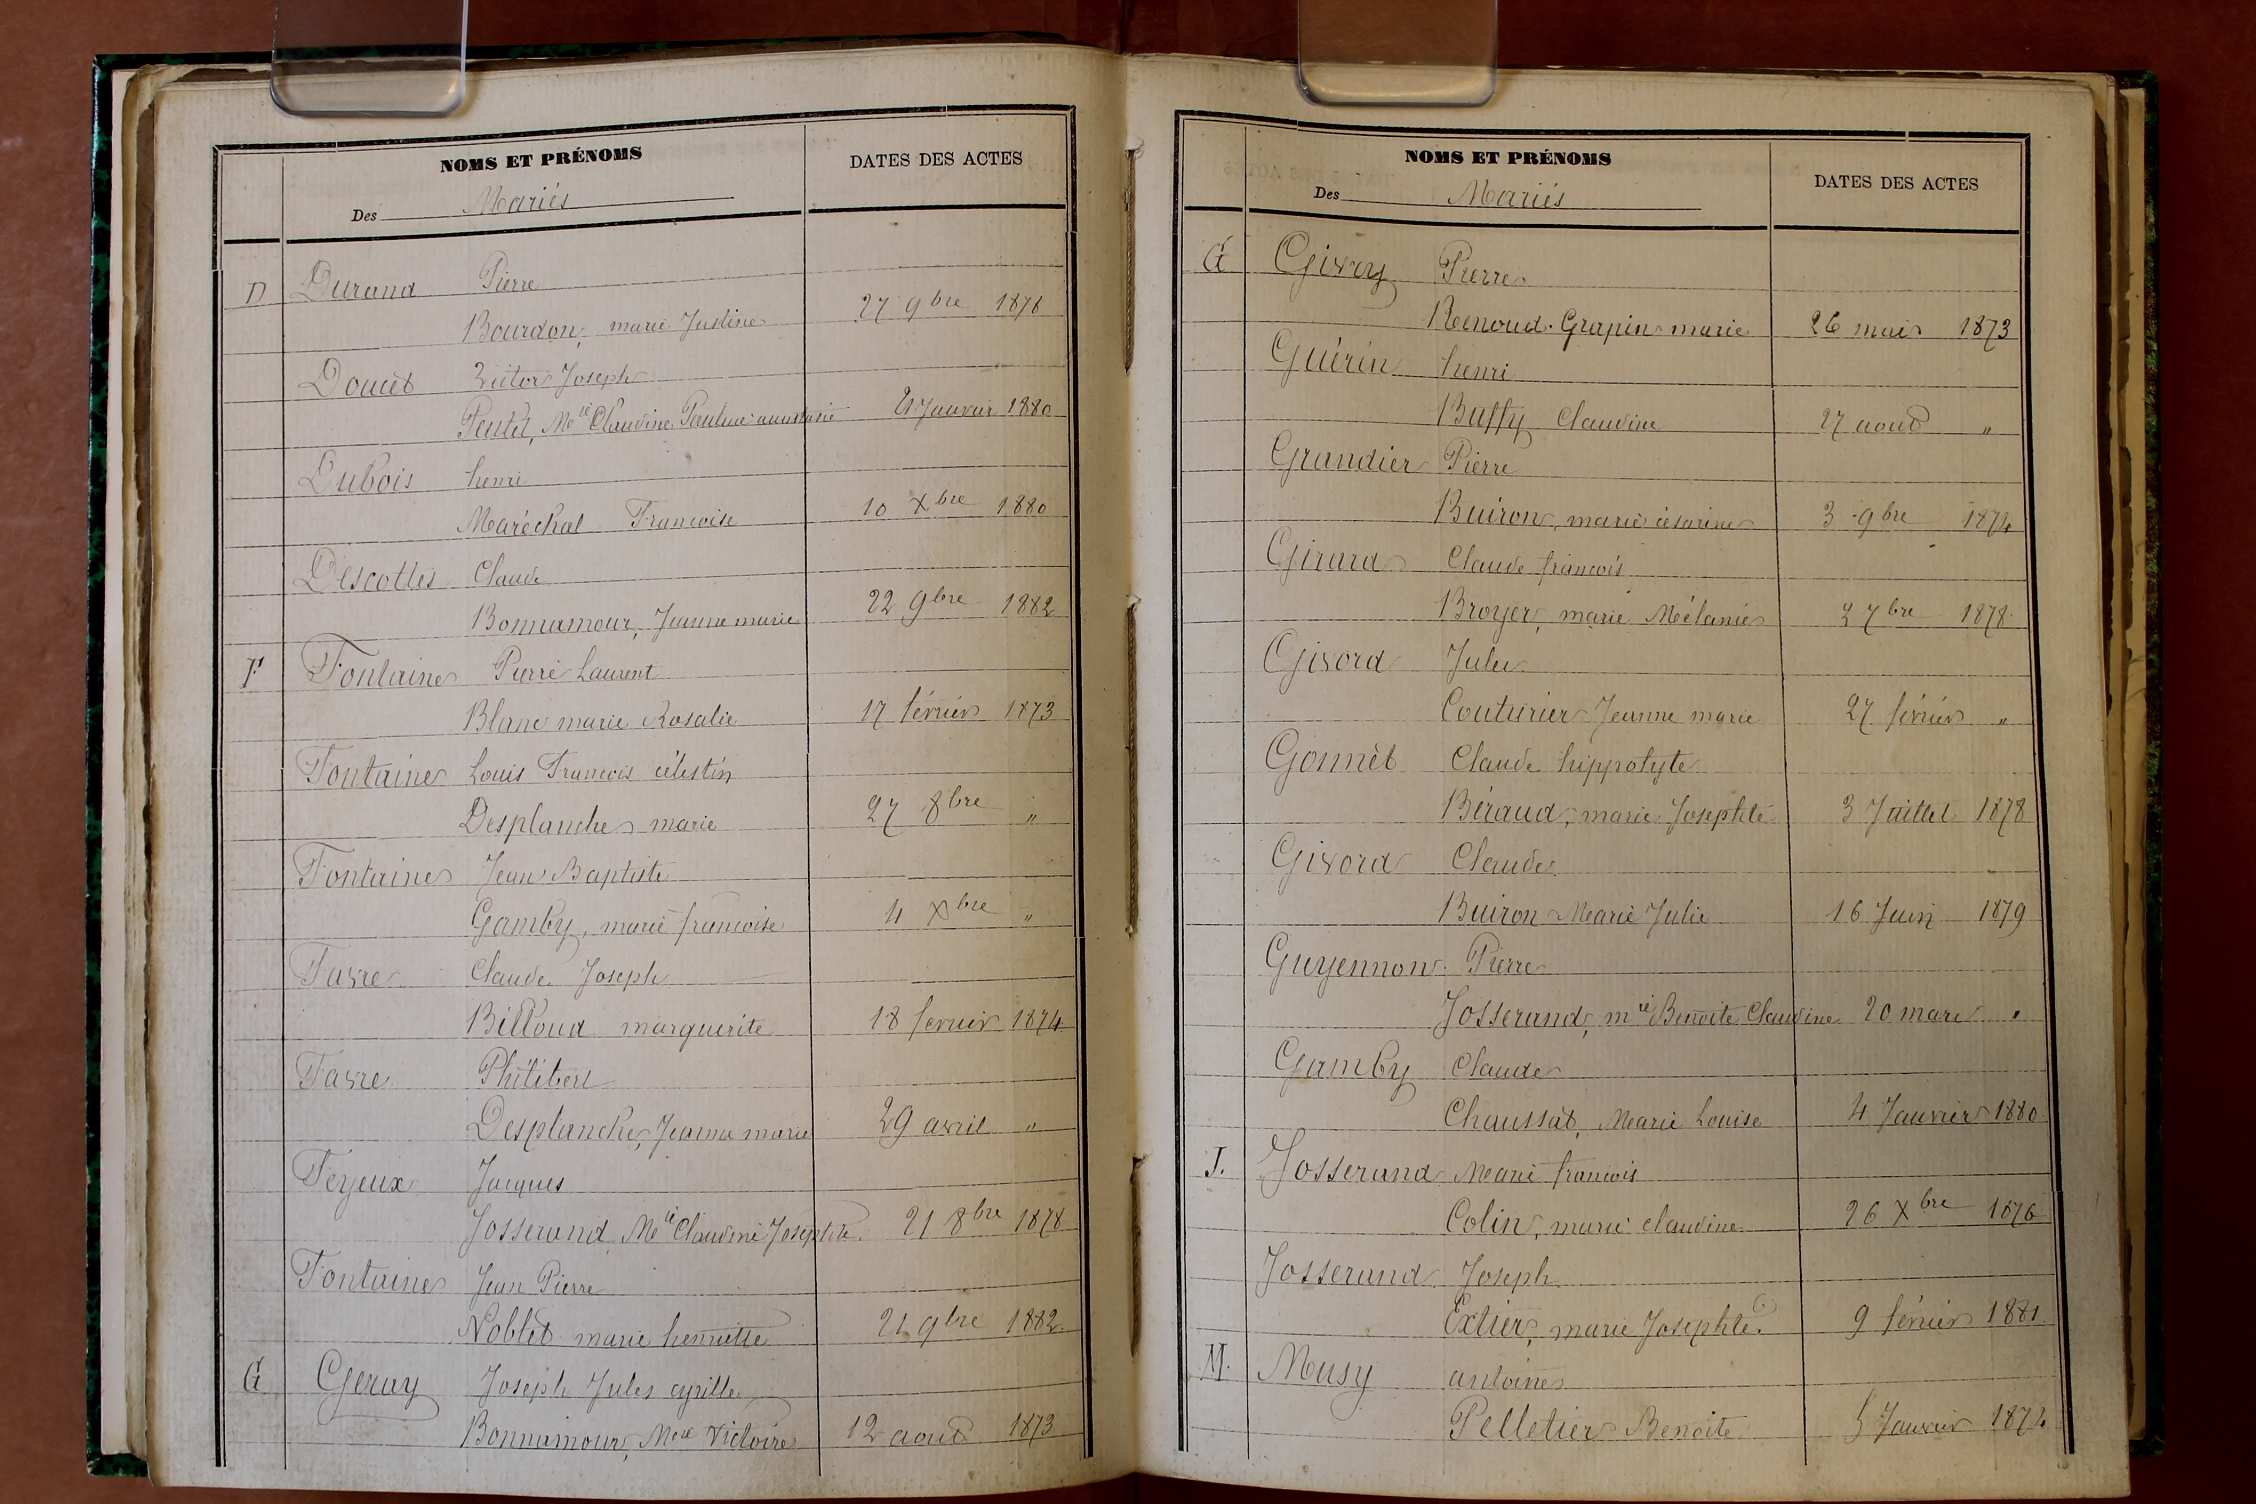 NOMS ET PRÉNOMS
DATES DES ACTES
Des Mariés
D Durand Pierre
Bourdon, marie Justine 27 9bre 1876
Doucet Victor Joseph
Pentet, Mrie Claudine Pauline anastasie 4 Janvier 1880
Dubois henri
Maréchal Francoise 10 Xbre 1880
Descottes Claude
Bonnamour, Jeanne marie 22 9bre 1882
F Fontaine Pierre Laurent
Blanc marie Rosalie 17 février 1873
Fontaine Louis Francois célestin
Desplanche marie 27 8bre "
Fontaine Jean Baptiste
Gamby, marie francoise 4 Xbre "
Favre Claude Joseph
Billoud marguerite 18 fevrier 1874
Favre Philibert
Desplanche, Jeanne marie 29 avril "
Feyeux Jacques
Josserand Mrie Claudine Josephte 21 8bre 1878
Fontaine Jean Pierre
Noblet marie henriette 21 9bre 1882
G Geray Joseph Jules cyrille
Bonnamour, Mrie Victoire 12 aout 1873
NOMS ET PRÉNOMS
DATES DES ACTES
Des Mariés
G Givry Pierre
Renoud-Grapin marie 26 mai 1873
Guérin henri
Buffy Claudine 27 aout "
Grandier Pierre
Buiron, marie césarine 3 9bre 1874
Girard Claude francois
Broyer, marie Mélanie 2 7bre 1878
Givord Jules
Couturier Jeanne marie 27 février "
Gonnet Claude hippolyte
Béraud, marie Josephte 3 Juillet 1878
Givord Claude
Buiron Marie Julie 16 Juin 1879
Guyennon Pierre
Josserand, mrie Benoite Claudine 20 mars "
Gamby Claude
Chaussat, Marie Louise 4 Janvier 1880
J. Josserand Marie francois
Colin, marie claudine 26 Xbre 1876
Josserand Joseph
Extier, marie Josephte. 9 février 1881
M. Musy antoine
Pelletier Benoite 5 Janvier 1874